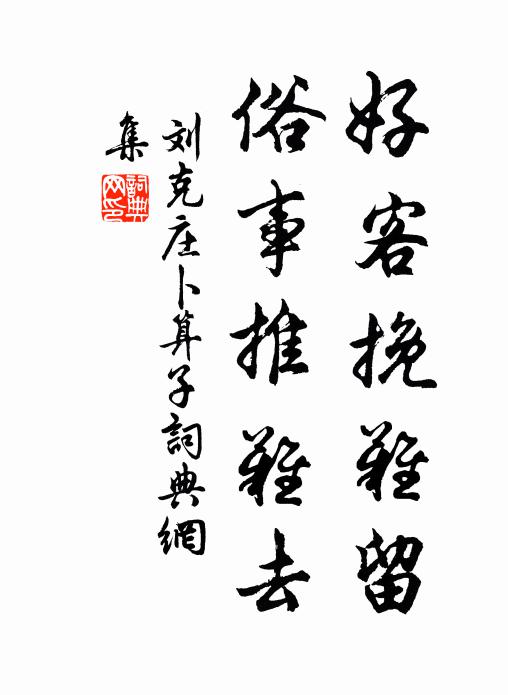 好客挽难留
俗事推难去
刘克庄卜算子詞典網
集
詞典
网印